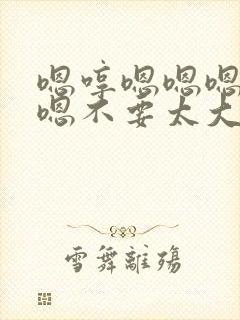 嗯哼嗯嗯嗯
嗯不要太大
雪舞離殤